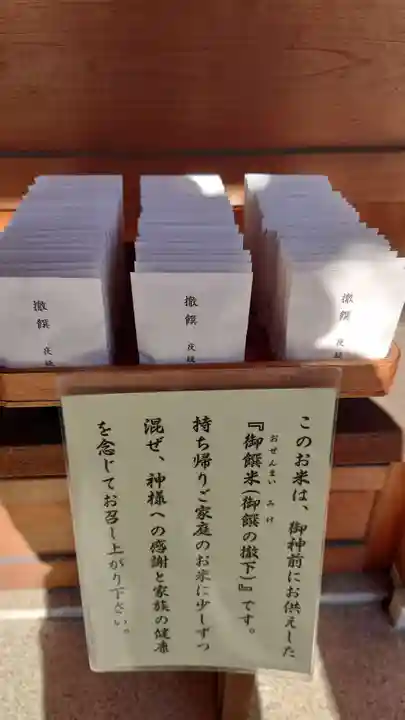 撤饌
撤饌
撤饌
このお米は、御神前にお供えした
『御饌米(御饌の撤下)』です。
おぜんまい みけ
持ち帰りご家庭のお米に少しずつ
混ぜ、神様への感謝と家族の健康
を念じてお召し上がり下さい。